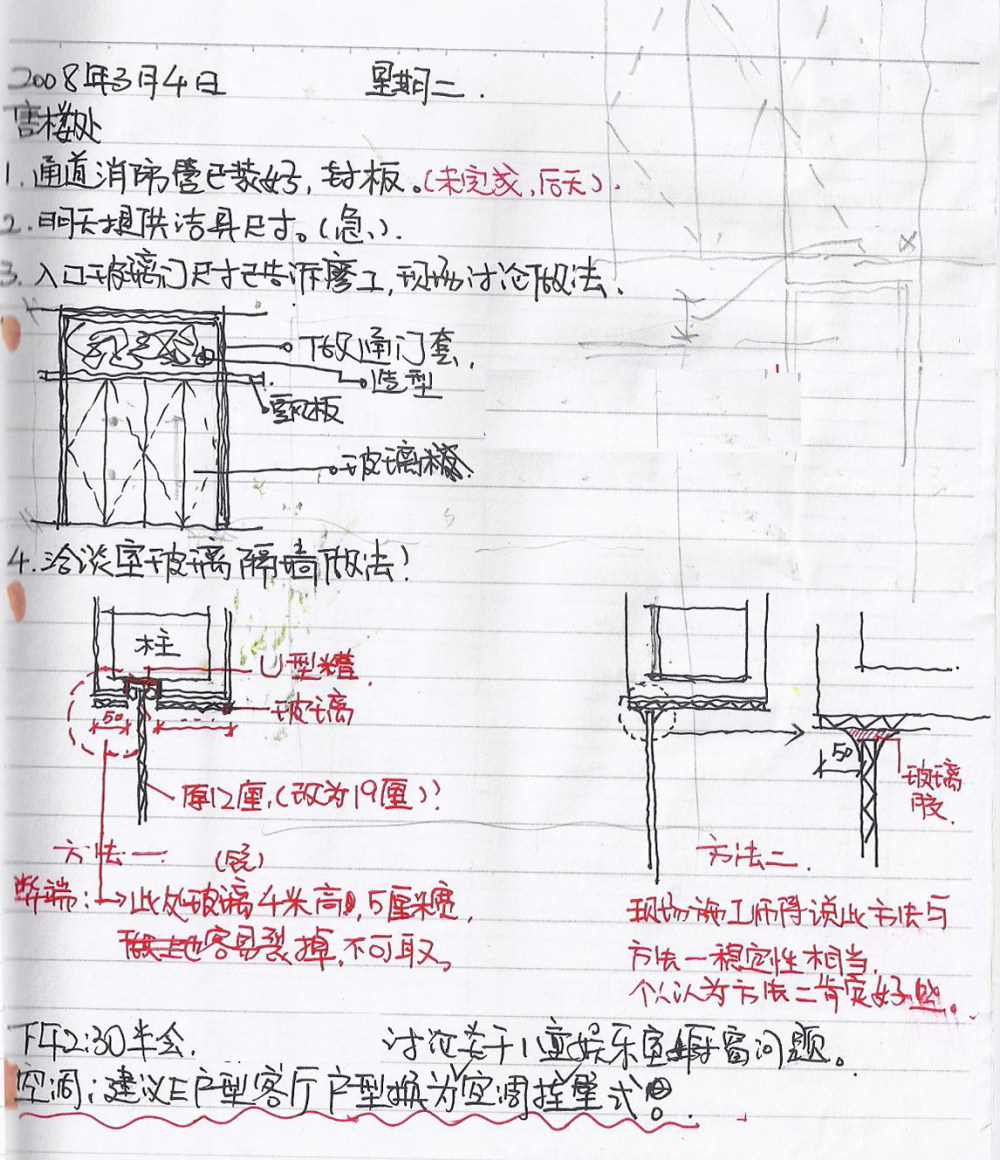 2008年3月4日 星期二.
售楼处
1.通道消防管已装好,封板。(未完成,后天).
2.明天提供洁具尺寸。(急).
3.入口玻璃门尺寸已告诉磨工,现场讨论做法.
做通门套.
造型
玻璃
4.洽谈室玻璃隔墙做法!
柱
U型槽.
玻璃
50
50
玻璃胶.
厚12厘.(改为19厘)?
方法一.
方法二.
弊端:→此处玻璃4米高,5厘米宽,
容易裂掉.不可取。
现场施工师傅说此方法与
方法一稳定性相当.
个人认为方法二肯定好些.
下午2:30半会. 讨论 娱乐室 窗问题。
空调:建议E户型客厅户型换为空调挂壁式。